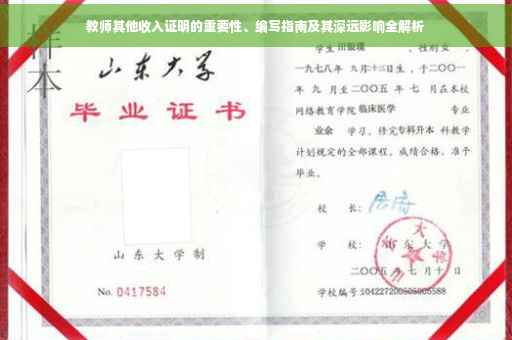 教师其他收入证明的重要性、编写指南及其深远影响全解析
样本
山东大学
毕业证书
山东大学制
No. 0417584
学生田银瑛 ,性别女 ,
一九七八年 九月十三日生,于二〇〇一
年 九 月至二〇〇五 年 七 月在本校
网络教育学院临床医学 专业
业余 学习,修完专科升本 科教学
计划规定的全部课程,成绩合格,准予
毕业。
校 长:
学 校: 山东大学
二〇〇五 年 七 月 十 日
学校编号: